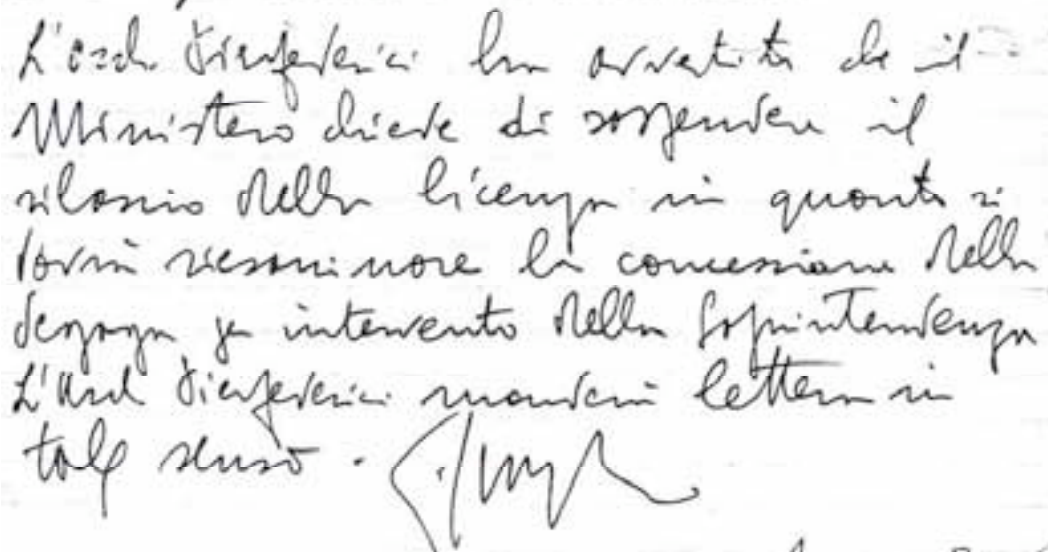 L'arch. Pierfederici ha avvertito che il
Ministero chiede di sospendere il
rilascio della licenza in quanto si
dovrà riesaminare la concessione della
deroga per intervento della Soprintendenza
L'Arch Pierfederici manderà lettera in
tale senso.